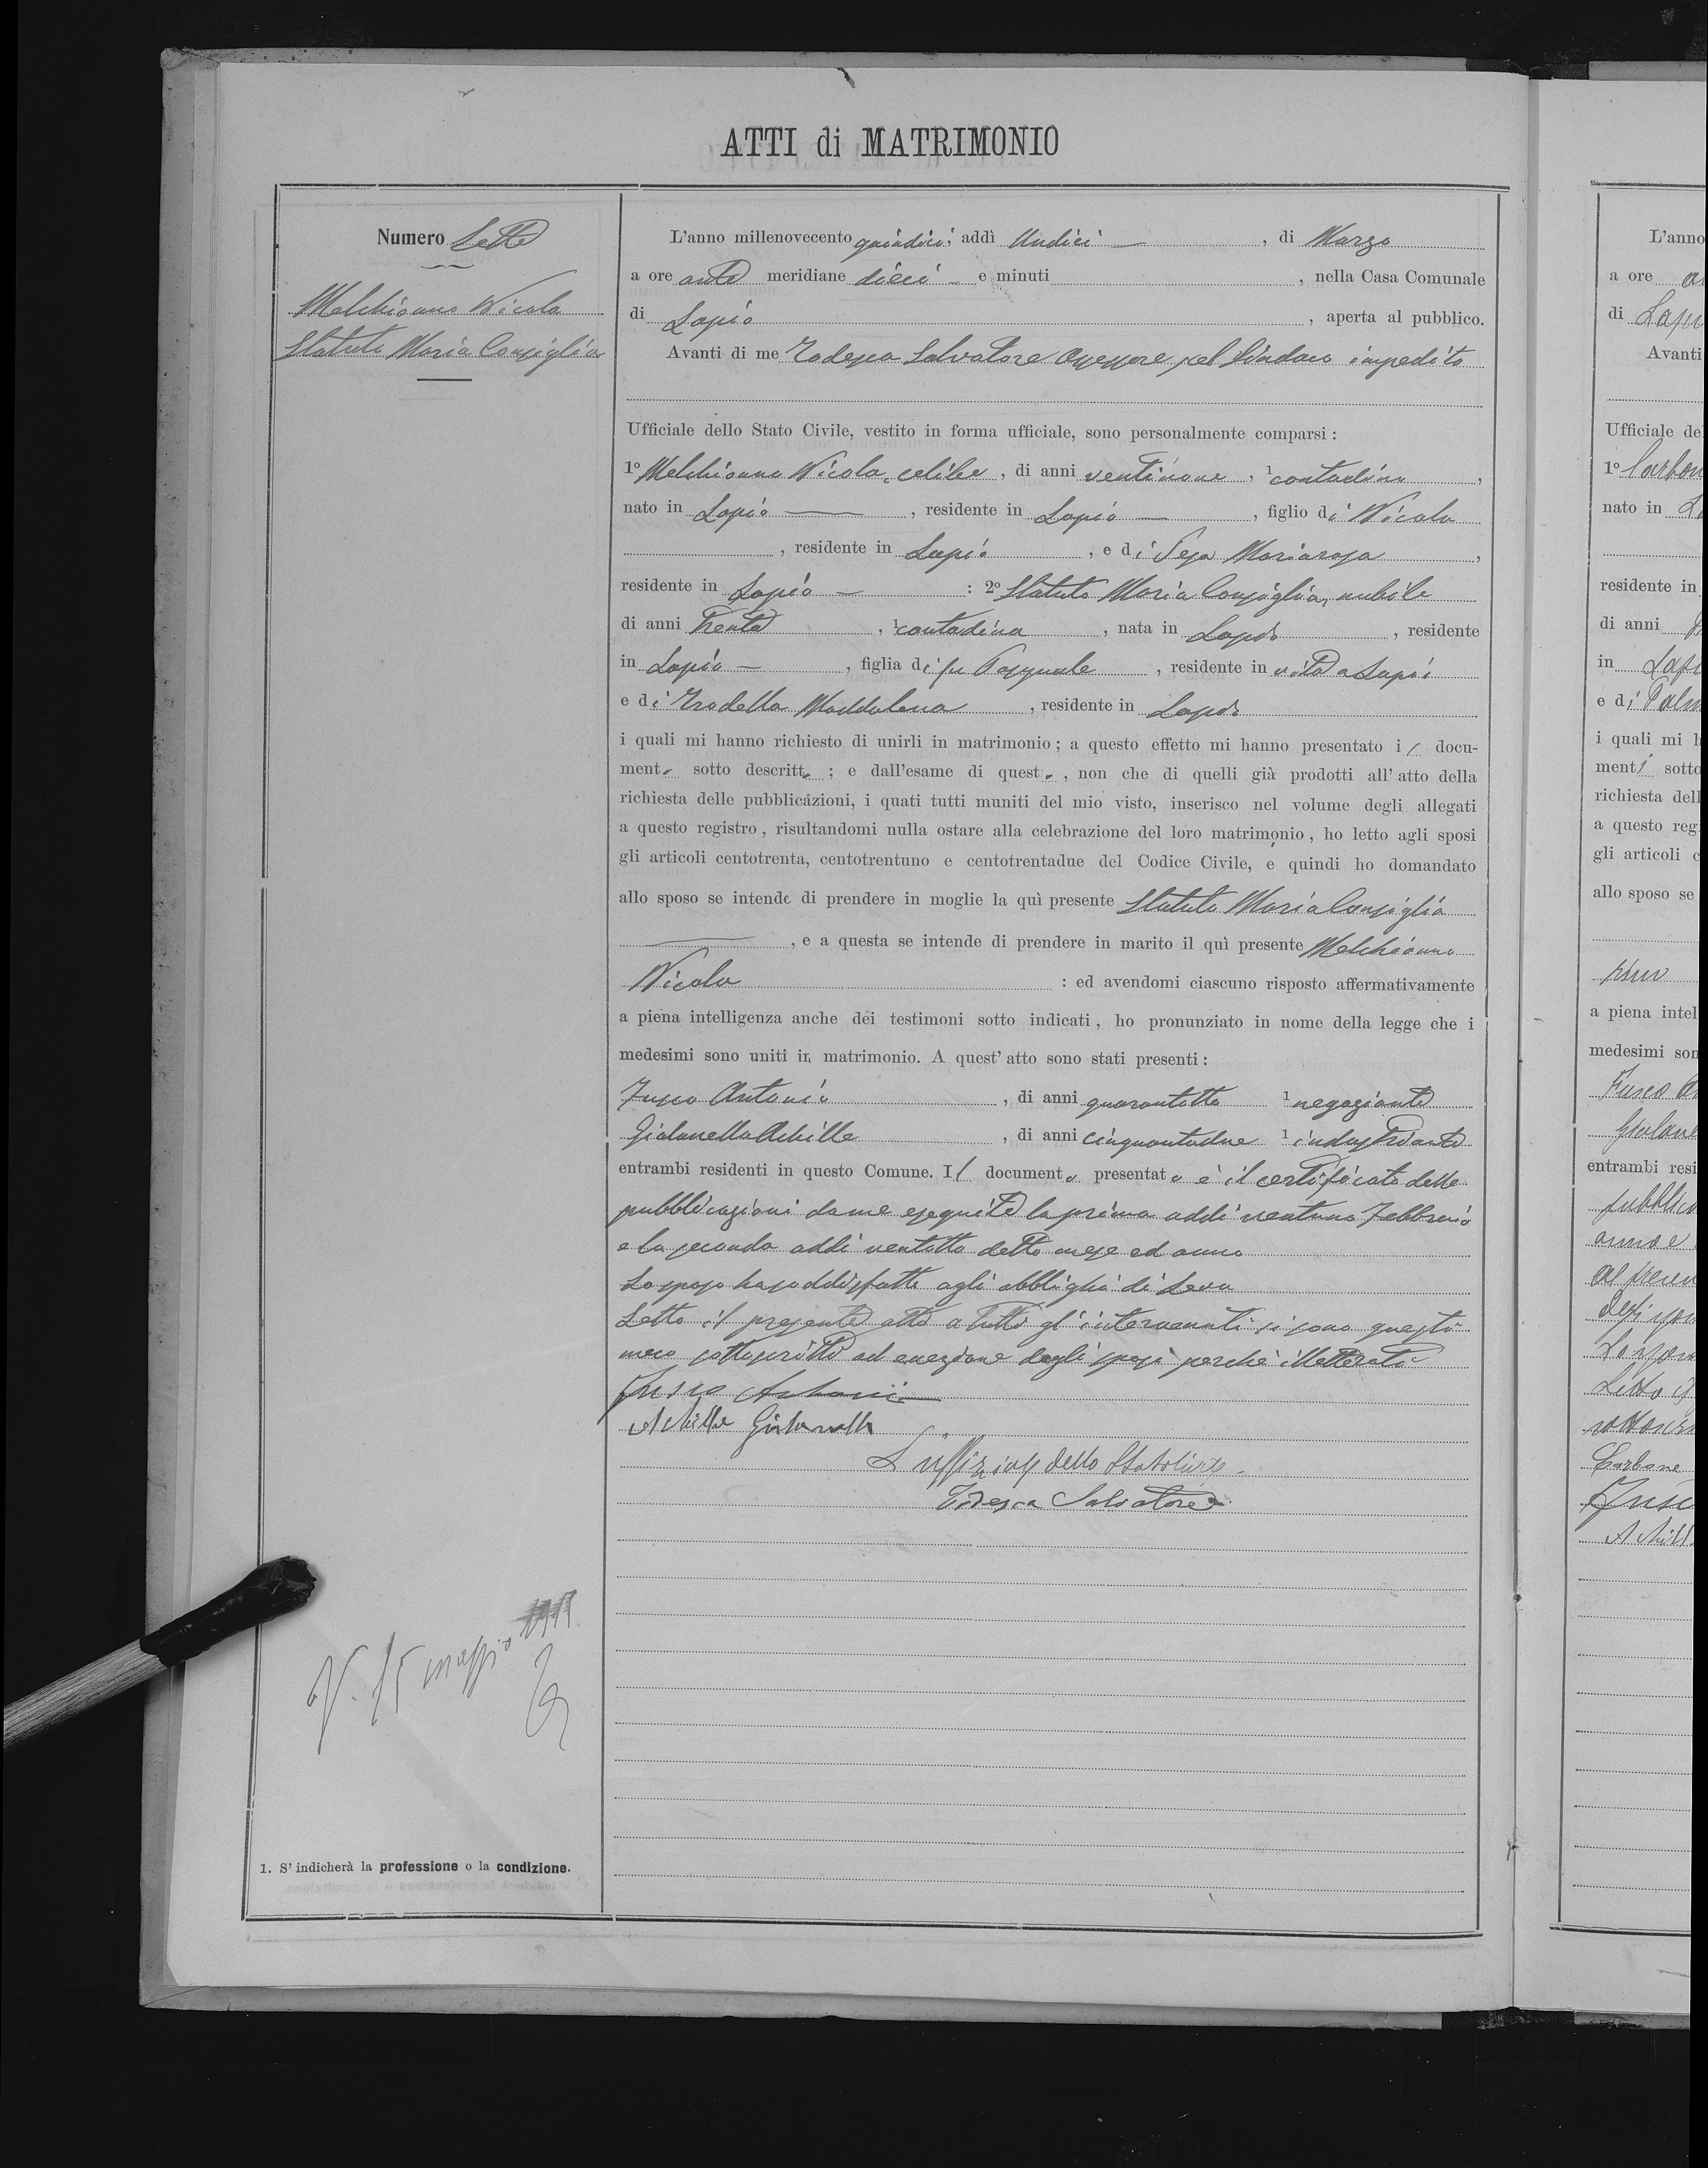 ATTI di MATRIMONIO
Numero Sette
Melchionno Nicola
Statuto Maria Consiglia
L'anno millenovecento quindici, addì Undici , di Marzo
a ore ante meridiane dieci e minuti , nella Casa Comunale
di Lapio , aperta al pubblico.
Avanti di me Todesca Salvatore Assessore pel Sindaco impedito
Ufficiale dello Stato Civile, vestito in forma ufficiale, sono personalmente comparsi :
1º Melchionno Nicola, celibe, di anni ventinove, 1 contadino,
nato in Lapio , residente in Lapio , figlio di Nicola
, residente in Lapio , e di Sesa Mariarosa ,
residente in Lapio : 2º Statuto Maria Consiglia, nubile
di anni Trenta , 1 contadina , nata in Lapio , residente
in Lapio , figlia di fu Pasquale , residente in vita a Lapio
e di Trodella Maddalena , residente in Lapio
i quali mi hanno richiesto di unirli in matrimonio ; a questo effetto mi hanno presentato il docu-
mento sotto descritto ; e dall'esame di questo , non che di quelli già prodotti all' atto della
richiesta delle pubblicazioni, i quati tutti muniti del mio visto, inserisco nel volume degli allegati
a questo registro , risultandomi nulla ostare alla celebrazione del loro matrimonio , ho letto agli sposi
gli articoli centotrenta, centotrentuno e centotrentadue del Codice Civile, e quindi ho domandato
allo sposo se intende di prendere in moglie la quì presente Statuto Maria Consiglia
, e a questa se intende di prendere in marito il quì presente Melchionno
Nicola : ed avendomi ciascuno risposto affermativamente
a piena intelligenza anche dei testimoni sotto indicati , ho pronunziato in nome della legge che i
medesimi sono uniti in matrimonio. A quest' atto sono stati presenti :
Fusco Antonio , di anni quarantotto 1 negoziante
Giolanella Achille , di anni cinquantadue 1 industriante
entrambi residenti in questo Comune. Il documento presentato è il certificato delle
pubblicazioni da me eseguite la prima addì ventuno Febbraio
e la seconda addì ventotto detto mese ed anno
Lo sposo ha soddisfatto agli obblighi di Leva
Letto il presente atto a tutti gl'intervenuti si sono questi
meco sottoscritti ad eccezione degli sposi perchè illetterati
Fusco Antonio
Achille Giolanella
L'uffiziale dello Stato Civile
Todesca Salvatore
V. 15 maggio 1915
1. S' indicherà la professione o la condizione.
L'anno
a ore
di Lapio
Avanti
Ufficiale de
1º Carbon
nato in
residente in
di anni
in
e di Palm
i quali mi h
menti sotto
richiesta dell
a questo reg
gli articoli c
allo sposo se
a piena intel
medesimi son
Fusco
entrambi resi
pubblic
Letto
Carbone
Fusc
Achill